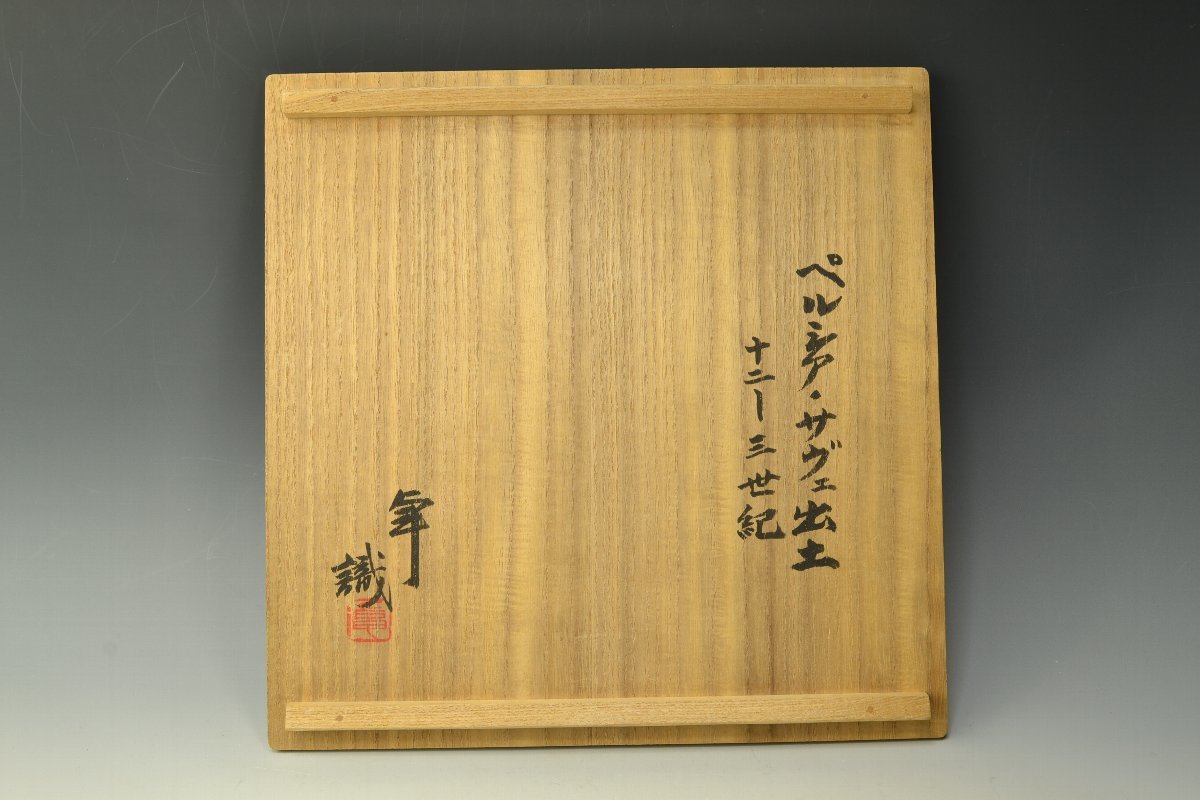 ペルシア・サヴェ出土
十二ー三世紀
識